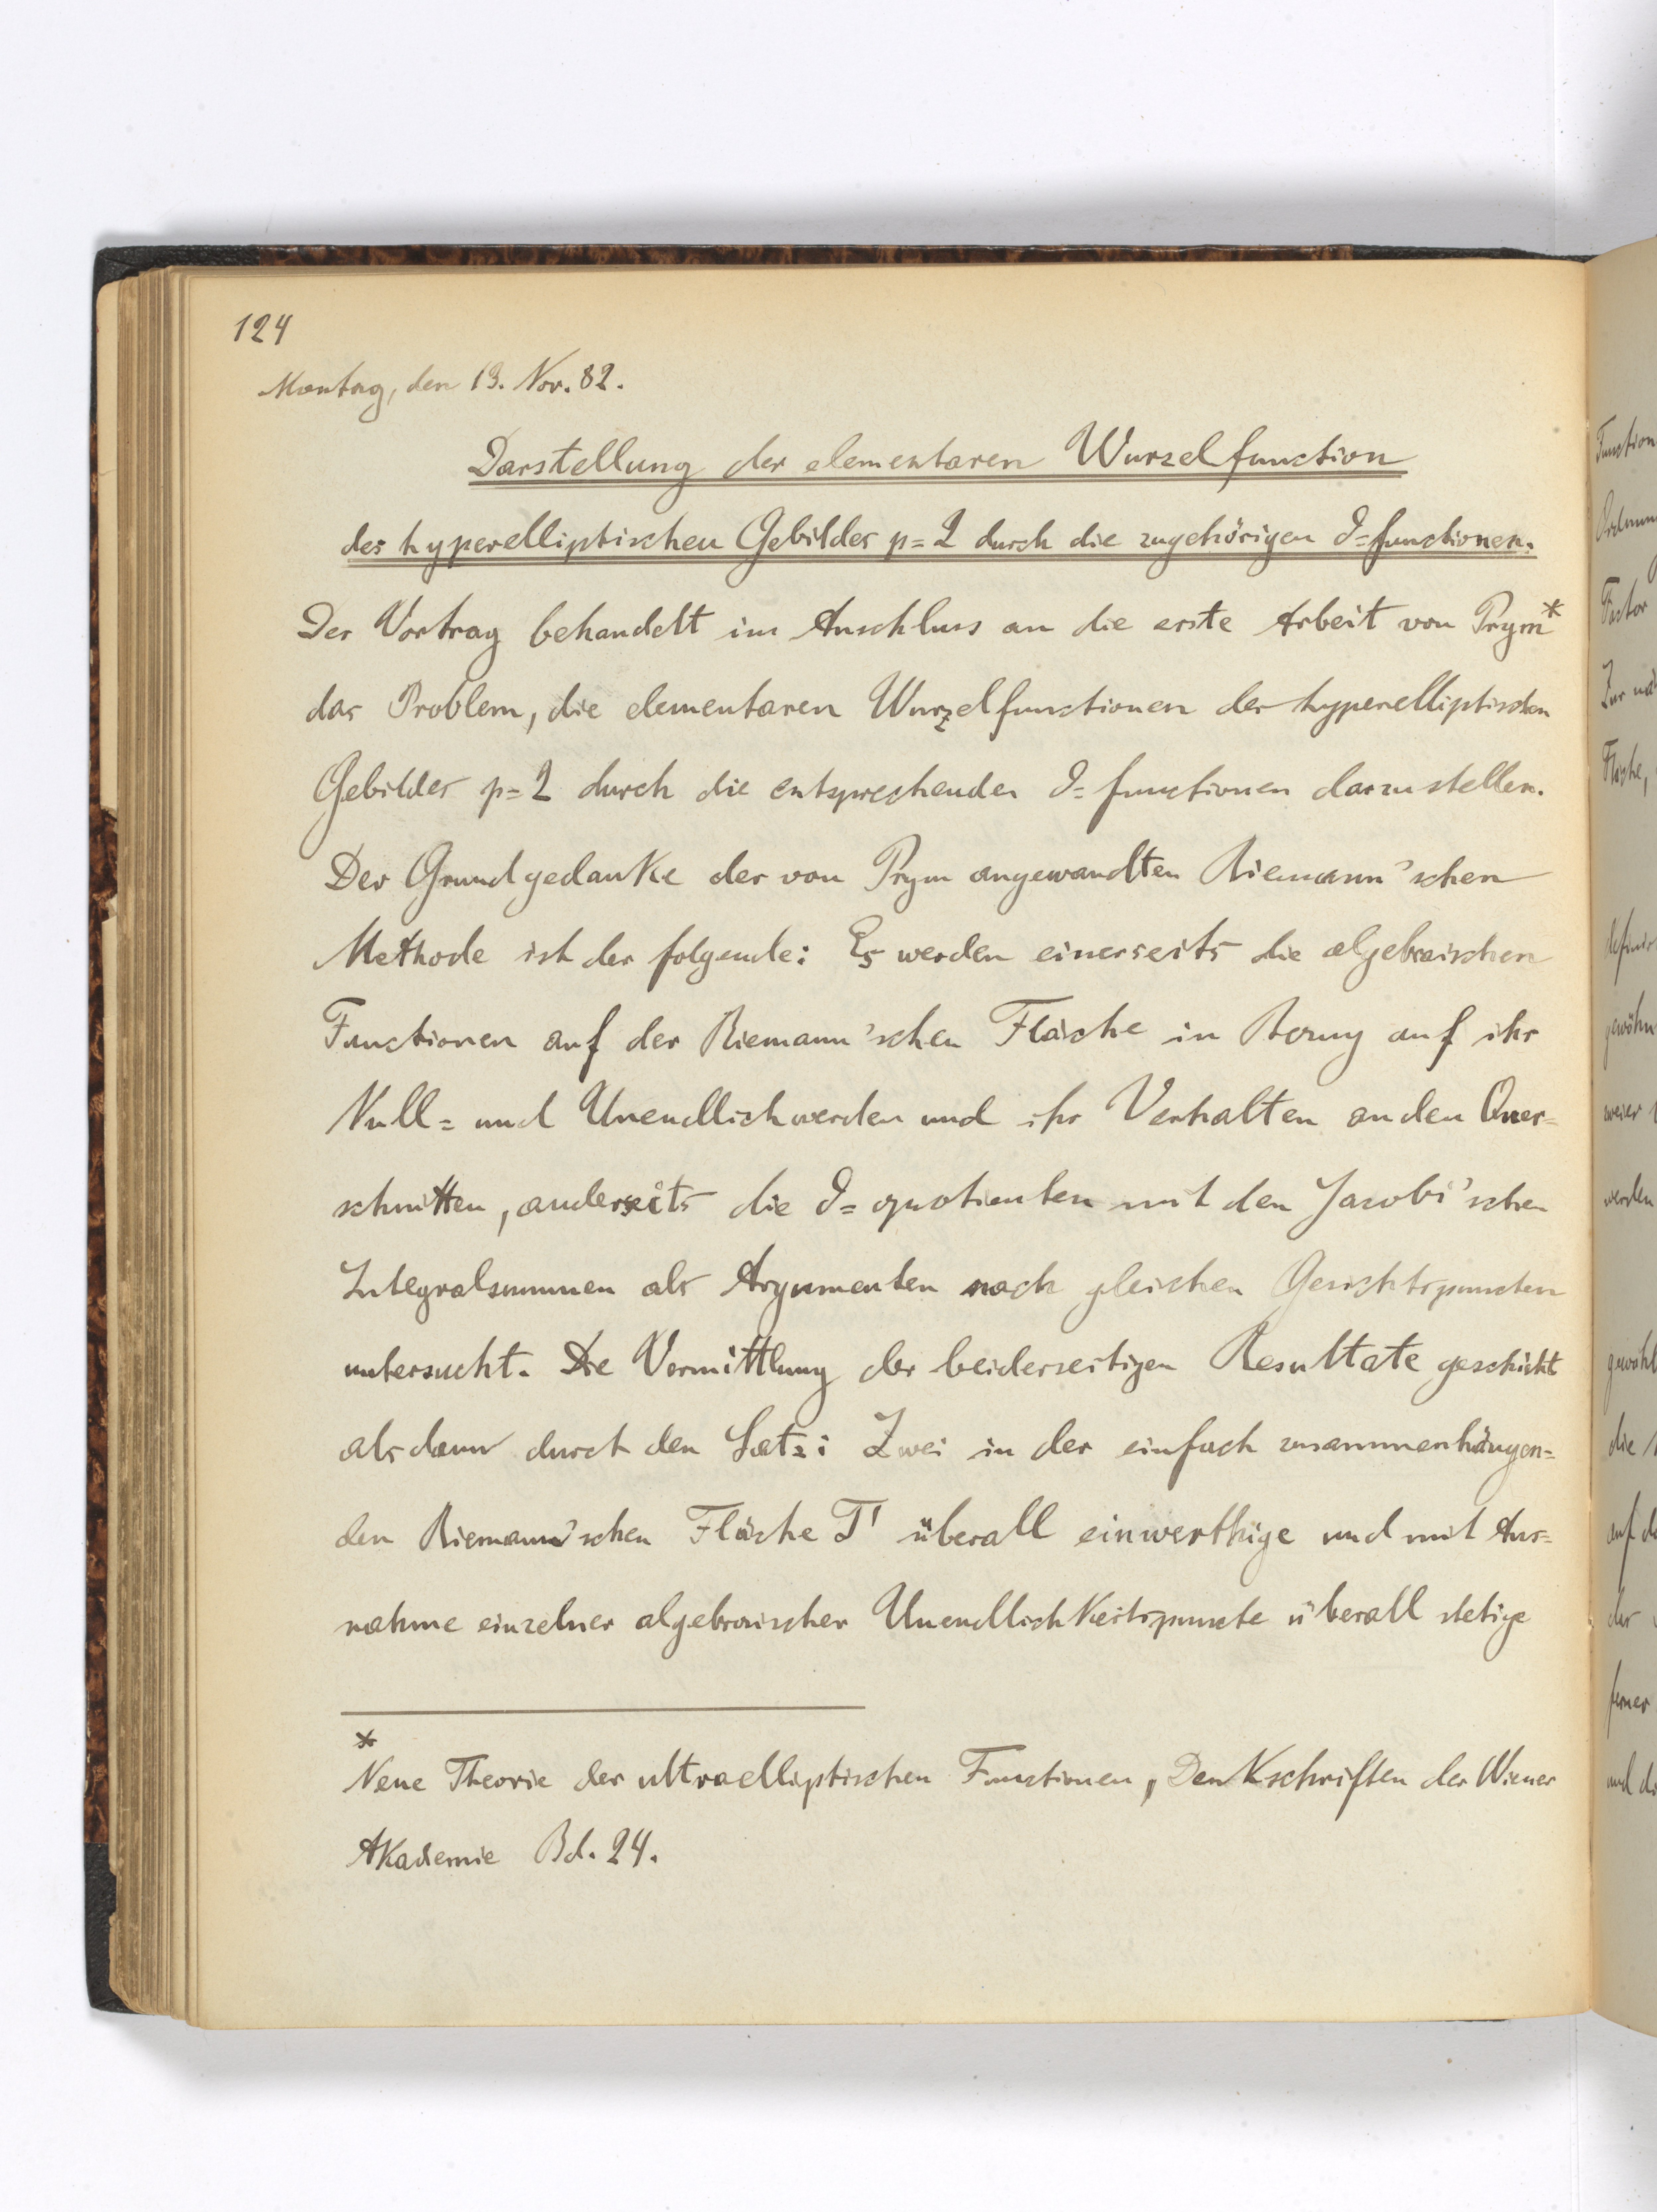 124
Montag, den 13. Nov. 82.
Darstellung der elementaren Wurzelfunction
des hyperelliptischen Gebildes p=2 durch die zugehörigen ϑ=functionen.
Der Vortrag behandelt im Anschluss an die erste Arbeit von Prym*
das Problem, die elementaren Wurzelfunctionen der hyperelliptischen
Gebildes p=2 durch die entsprechenden ϑ=functionen darzustellen.
Der Grundgedanke der von Prym angewandten Riemann'schen
Methode ist der folgende: Es werden einerseits die algebraischen
Functionen auf der Riemann'schen Fläche in Bezug auf ihr
Null= und Unendlichwerden und ihr Verhalten an den Quer=
schnitten, anderseits die ϑ=quotienten mit den Jacobi'schen
Integralsummen als Argumenten nach gleichen Gesichtspuncten
untersucht. Die Vermittlung der beiderseitigen Resultate geschieht
alsdann durch den Satz: Zwei in der einfach zusammenhängen=
den Riemann'schen Fläche T' überall einwerthige und mit Aus=
nahme einzelner algebraischer Unendlichkeitspuncte überall stetige
*
Neue Theorie der ultraelliptischen Functionen, Denkschriften der Wiener
Akademie Bd. 24.
Function
Factor
Zur
Fläche,
zweier
werden
die
auf
der
ferner
und